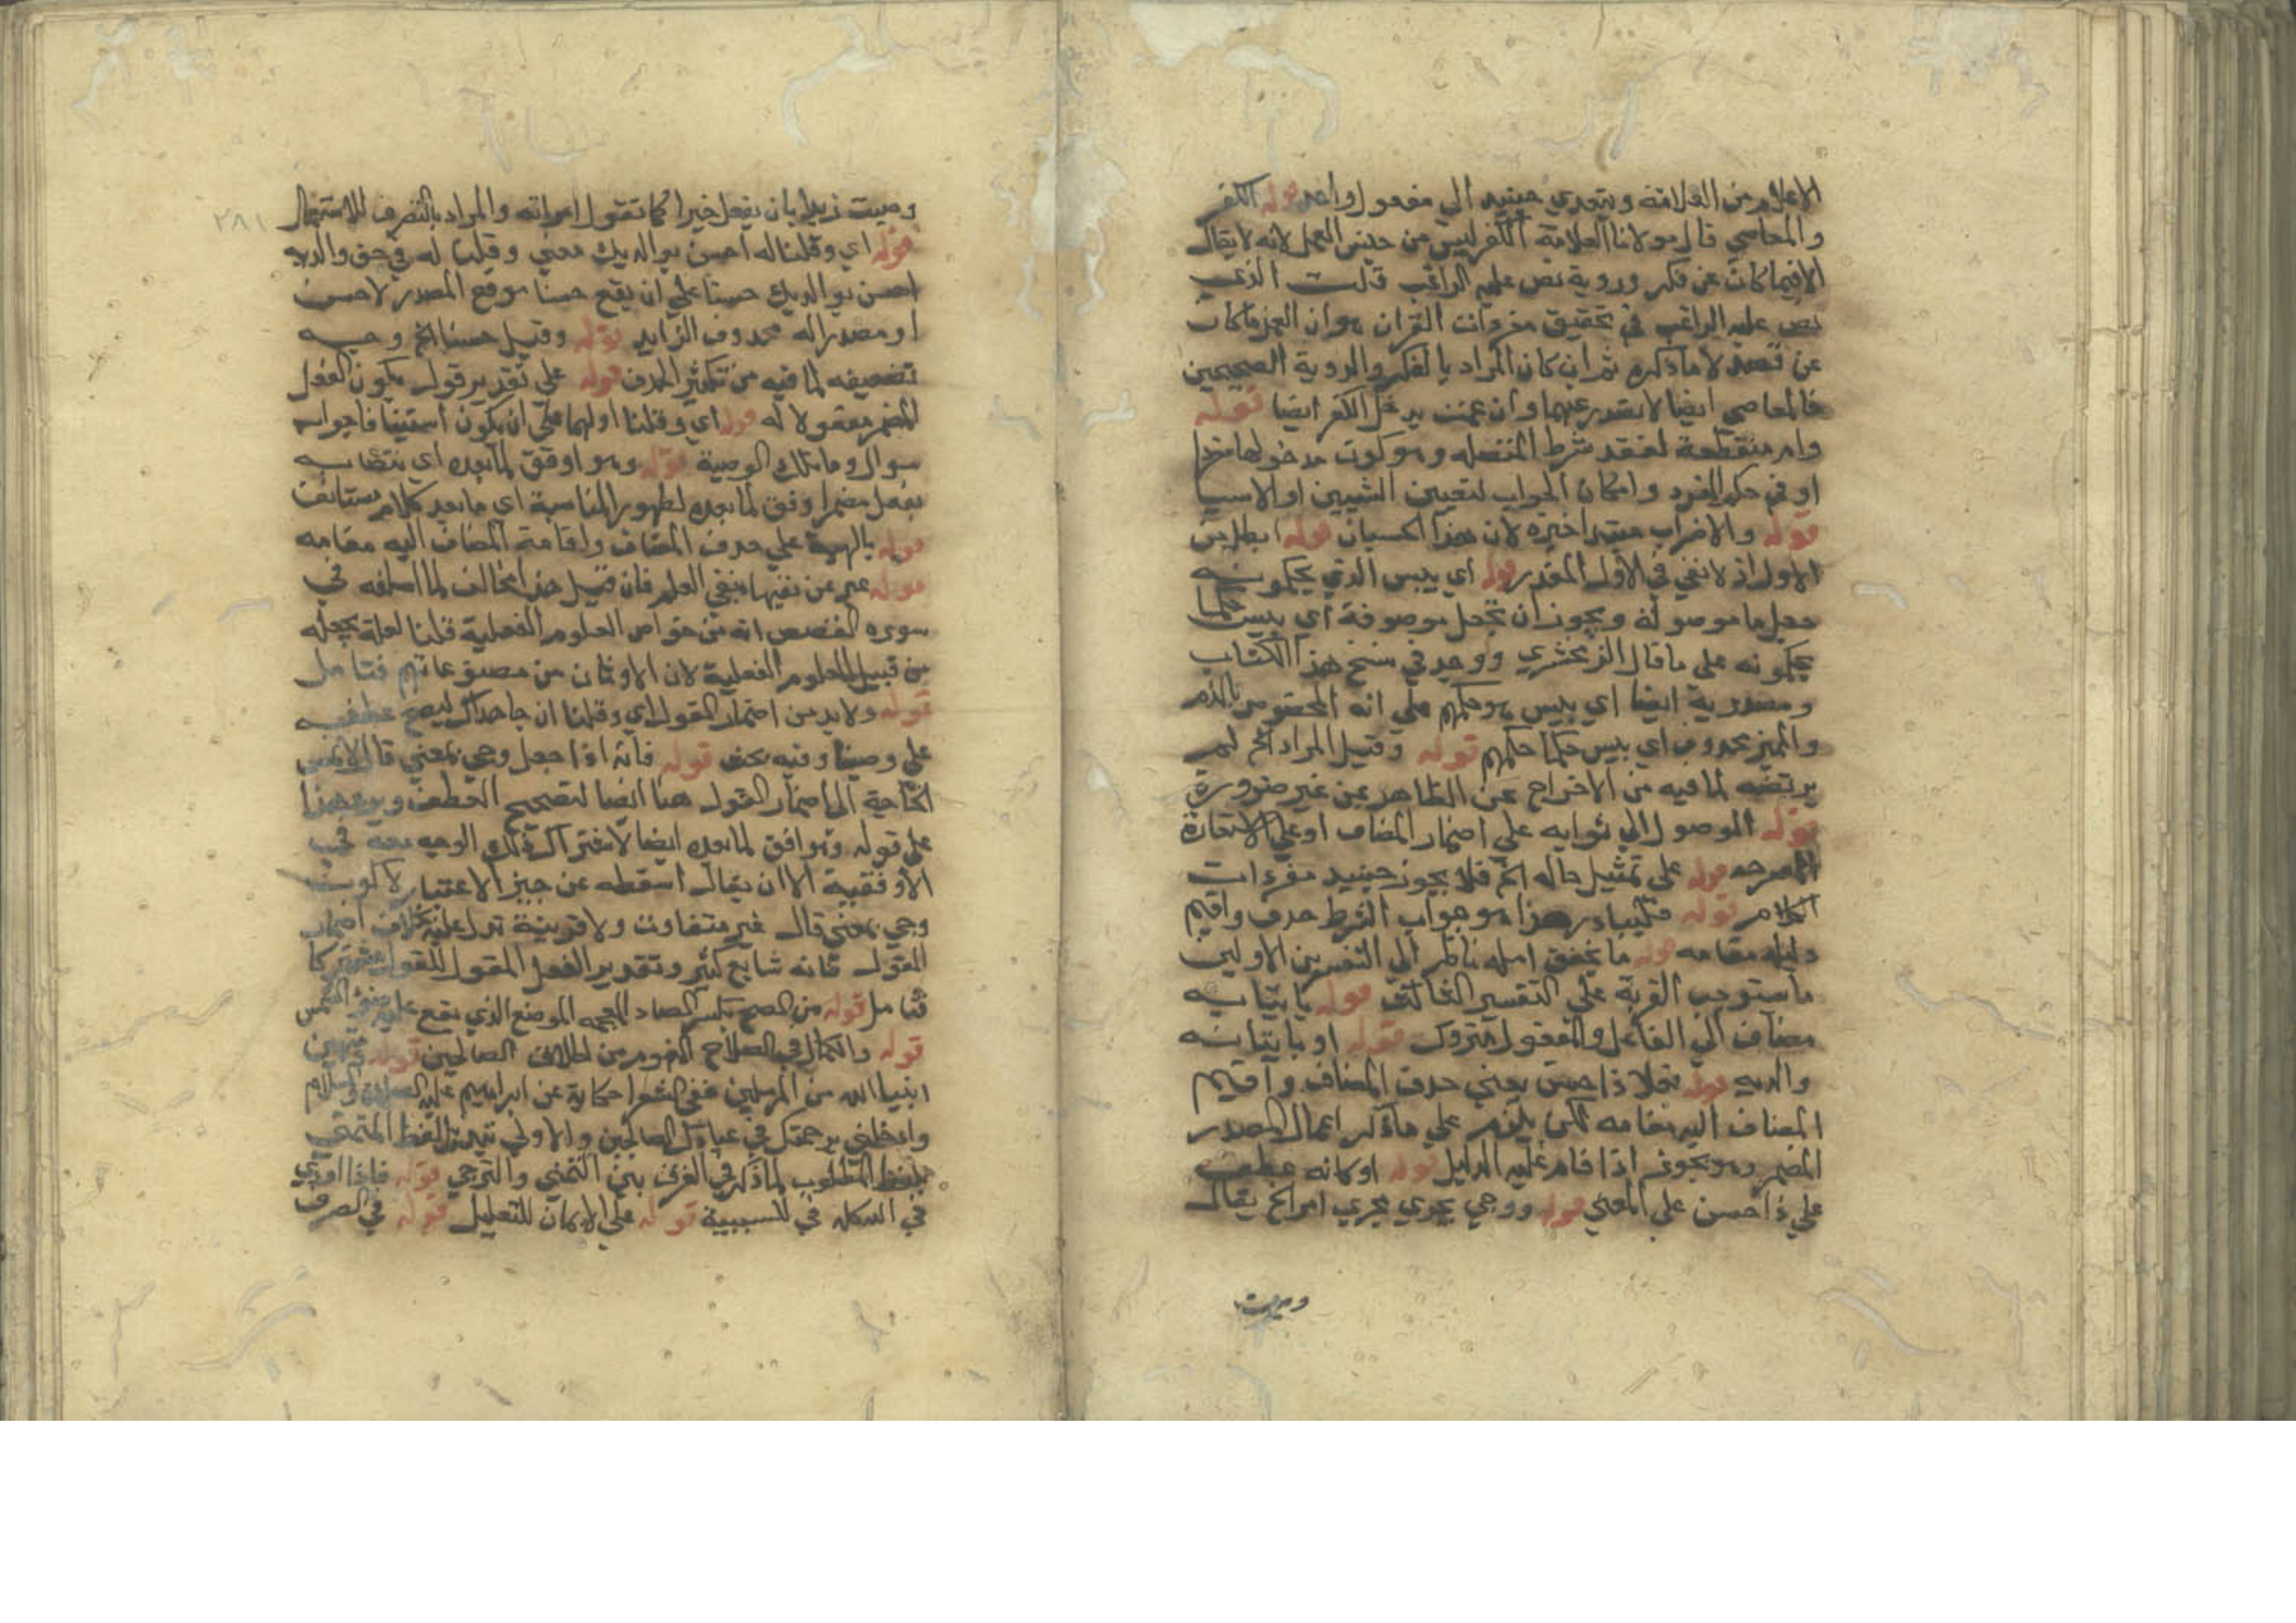 الاعلام من العلامة ويتعدي حينيد الي مفعول واحد قوله الكفر
والمعاصي قال مولانا العلامة الكفر ليس من جنس العمل لانه لا يقال
الا فيما كان عن فكر وروية نص عليه الراغب قلت الذي
نص عليه الراغب في تحقيق مفردات القران هو ان العمل ما كان
عن قصد لا ما ذكره ثم ان كان المراد بالفكر والروية الصحيحين
فالمعاصي ايضا لا تصدر عنهما وان عمت يدخل الكفر ايضا قوله
وام منقطعة لفقد شرط المتصله وهو كون مدخولها مفردا
او في حكم المفرد وامكان الجواب لتعيين الشيين او الاسيا
قوله والاضراب مبتدا خبره لان هذا الحسبان قوله ابطل من
الاول اذ لا نفي في الاول المقدر قوله اي بيس الذي يحكمونه
جعل ما موصولة ويجوز ان تجعل موصوفة اي بيس حكما
يحكمونه علي ما قال الزمخشري ووجد في نسخ هذا الكتاب
ومصدرية ايضا اي بيس هو حكمهم علي انه المخصوص بالذم
والمميز محذوف اي بيس حكما حكمهم قوله وقيل المراد الخ لم
يرتضه لما فيه من الاخراج عن الظاهر من غير ضرورة
قوله الموصول الي ثوابه علي اضمار المضاف او علي الاستعارة
المصرحه قوله علي تمثيل حاله الخ فلا يجوز حينيد مفردات
الكلام قوله فليبادر هذا هو جواب الشرط حذف واقيم
دليله مقامه قوله ما يحقق امله ناظر الي التفسيرين الاولين
ما يستوجب القربة علي التفسير الثالث قوله بايتايه
مضاف الي الفاعل والمفعول متروك قوله او بايتايه
والديه قوله فعلا ذا حسن يعني حذف المضاف واقيم
المضاف اليه مقامه لكن يلزم علي ما ذكر اعمال المصدر
المضمر وهو يجوز اذا قام عليه الدليل قوله او كانه عطف
علي ذا حسن علي المعني قوله ووصي يجري مجري امر الخ يقال
وصيت
وصيت زيدا بان يفعل خيرا كما تقول امرته والمراد بالتصرف للاستعمال
٢٨١
قوله اي وقلنا له احسن بوالديك معني وقلنا له في حق والديه
احسن بوالديك حسنا علي ان يقع حسنا موقع المصدر لاحسن
او مصدرا له محذوف الزايد قوله وقيل حسنا الخ وجه
تضعيفه لما فيه من تكثير الحذف قوله علي تقدير قول يكون الفعل
المضمر مقولا له قوله اي وقلنا اولهما علي ان يكون استينافا جواب
سوال وما تلك الوصية قوله وهو اوفق لما بعده اي نتصابه
بفعل مضمر اوفق لما بعده لظهور المناسبة اي ما بعد كلام مستانف
قوله بالهية علي حذف المضاف واقامة المضاف اليه مقامه
قوله عبر عن نفيها بنفي العلم فان قيل هذا مخالف لما اسلفه في
سورة القصص انه من خواص العلوم الفعلية قلنا لعله يجعله
من قبيل العلوم الفعلية لان الاوثان من مصنوعاتهم فتامل
قوله ولابد من اضمار القول اي وقلنا ان جاهداك ليصح عطفه
علي وصينا وفيه بحث قوله فانه اذا جعل وصي بمعني قال لا تمس
الحاجة الي اضمار القول هنا ايضا لتصحيح العطف ويرد هذا
علي قوله وهو اوفق لما بعده ايضا لاشتراك ذلك الوجه معه في
الاوفقية الا ان يقال اسقطه عن حيز الاعتبار لا كون
وصي بمعني قال غير متفاوت ولا قرينة تدل عليه بخلاف اضمار
القول فانه شايع كثير وتقدير الفعل المقول للقول مشترك
فتامل قوله من الضح بكسر الضاد المعجمه الموضع الذي يقع عليه ضوء الشمس
قوله والكمال في الصلاح المفهوم من اطلاق الصالحين قوله ومتمني
انبيا الله من المرسلين ففي الشعرا حكاية عن ابراهيم عليه الصلاة والسلام
وادخلني برحمتك في عبادك الصالحين والاولي تبديل لفظ المتمني
بلفظ المطلوب لما ذكر في الفرق بين التمني والترجي قوله فاذا اوذي
في الله كلمه في للسببية قوله علي الايمان للتعليل قوله في الصرف